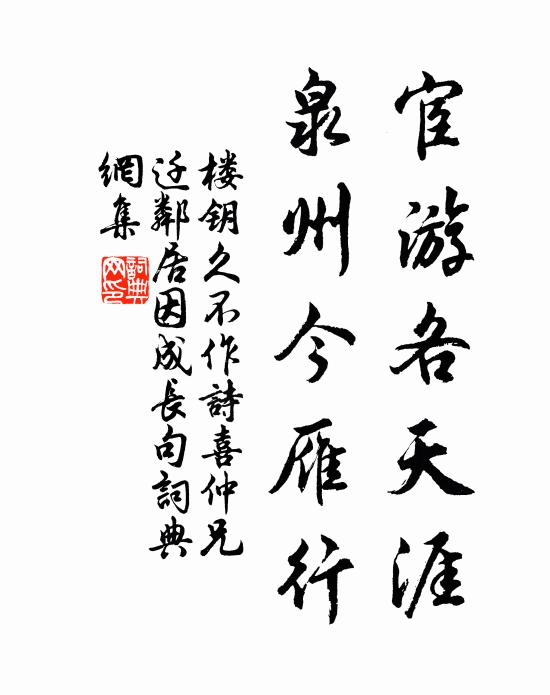 宦游各天涯
泉州今雁行
楼钥久不作詩喜仲兄
迁鄰居因成長句詞典
網集
詞典
网印